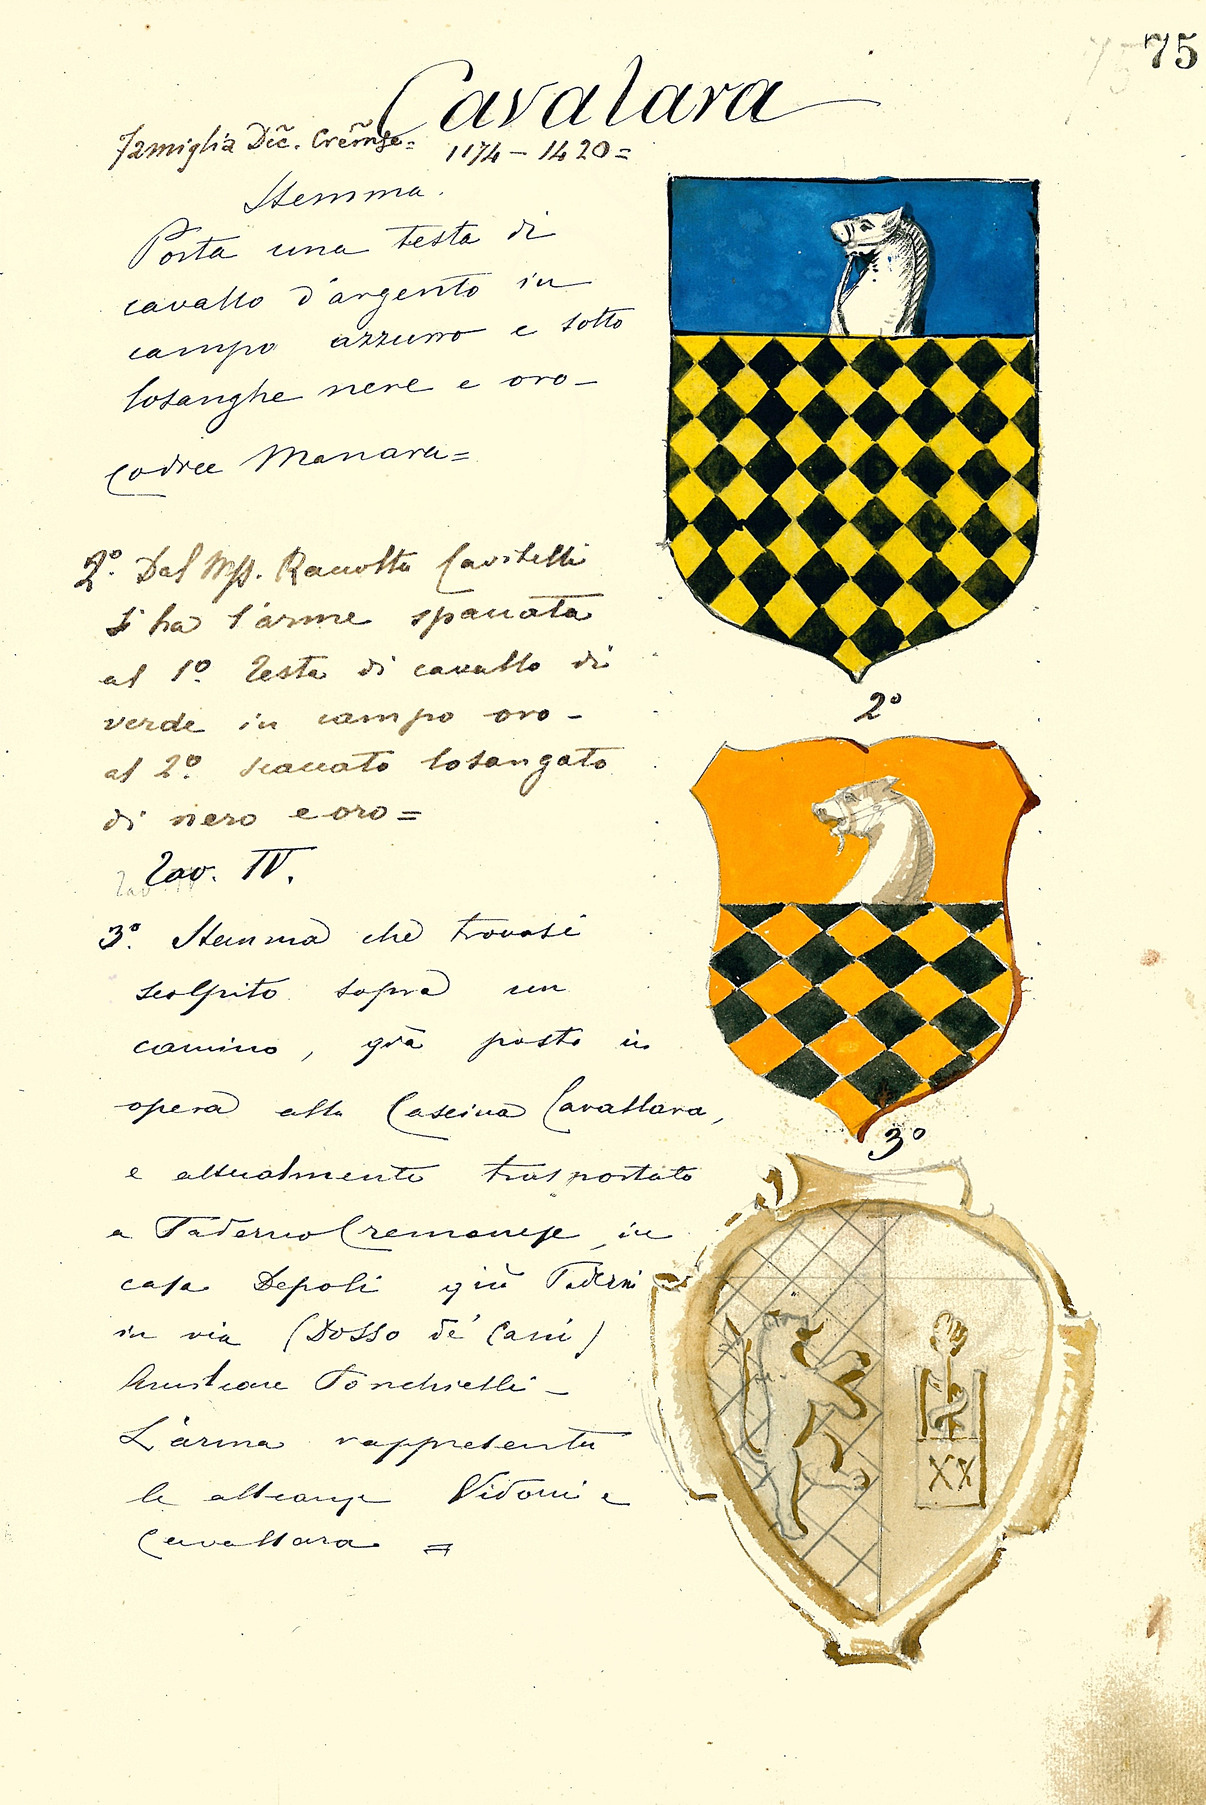 75 75
Cavalara
famiglia Dec. Cremse=
1174 - 1420=
Stemma.
Porta una testa di
cavallo d'argento in
campo azzurro e sotto
losanghe nere e oro-
Codice Manara=
2°. Dal Mss. Raccolta Cavitelli
s'ha l'arme spaccata
al 1° testa di cavallo di
verde in campo oro-
al 2° scaccato losangato
di nero e oro=
Tav. IV.
3°. Stemma che trovasi
scolpito sopra un
camino, già posto in
opera alla Cascina Cavallara,
e attualmente trasportato
a Paderno Cremonese, in
casa Depoli già Paderni
in via (Dosso de' Cani)
Ponchielli-
L'arma rappresenta
le alleanze Vidoni e
Cavallara =
2°
3°
XX